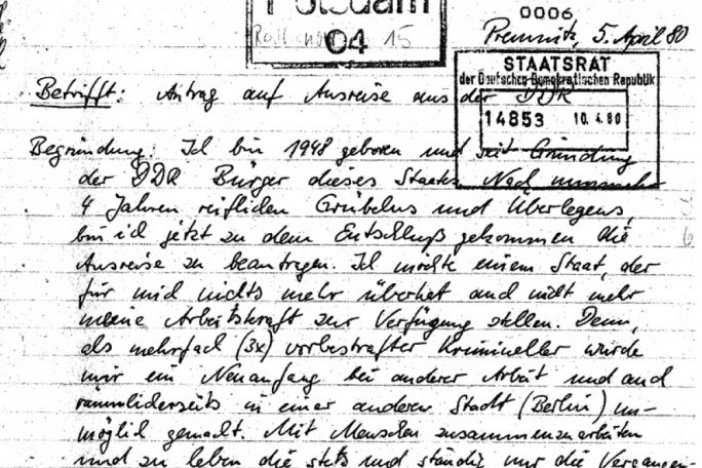 Potsdam
04
15
0006
Premnitz, 5. April 80
STAATSRAT
der Deutschen Demokratischen Republik
14853 10.4.80
Betrifft: Antrag auf Ausreise aus der DDR
Begründung: Ich bin 1948 geboren und seit Gründung
der DDR Bürger dieses Staats. Nach nunmehr
4 Jahren reiflichen Grübelns und Überlegens,
bin ich jetzt zu dem Entschluß gekommen die
Ausreise zu beantragen. Ich möchte einem Staat, der
für mich nichts mehr übrighat auch nicht mehr
meine Arbeitskraft zur Verfügung stellen. Denn,
als mehrfach (3x) vorbestrafter Krimineller wurde
mir ein Neuanfang bei anderer Arbeit und auch
räumlicherseits in einer anderen Stadt (Berlin) un-
möglich gemacht. Mit Menschen zusammenzuarbeiten
und zu leben die stets und ständig nur die Vergangen-